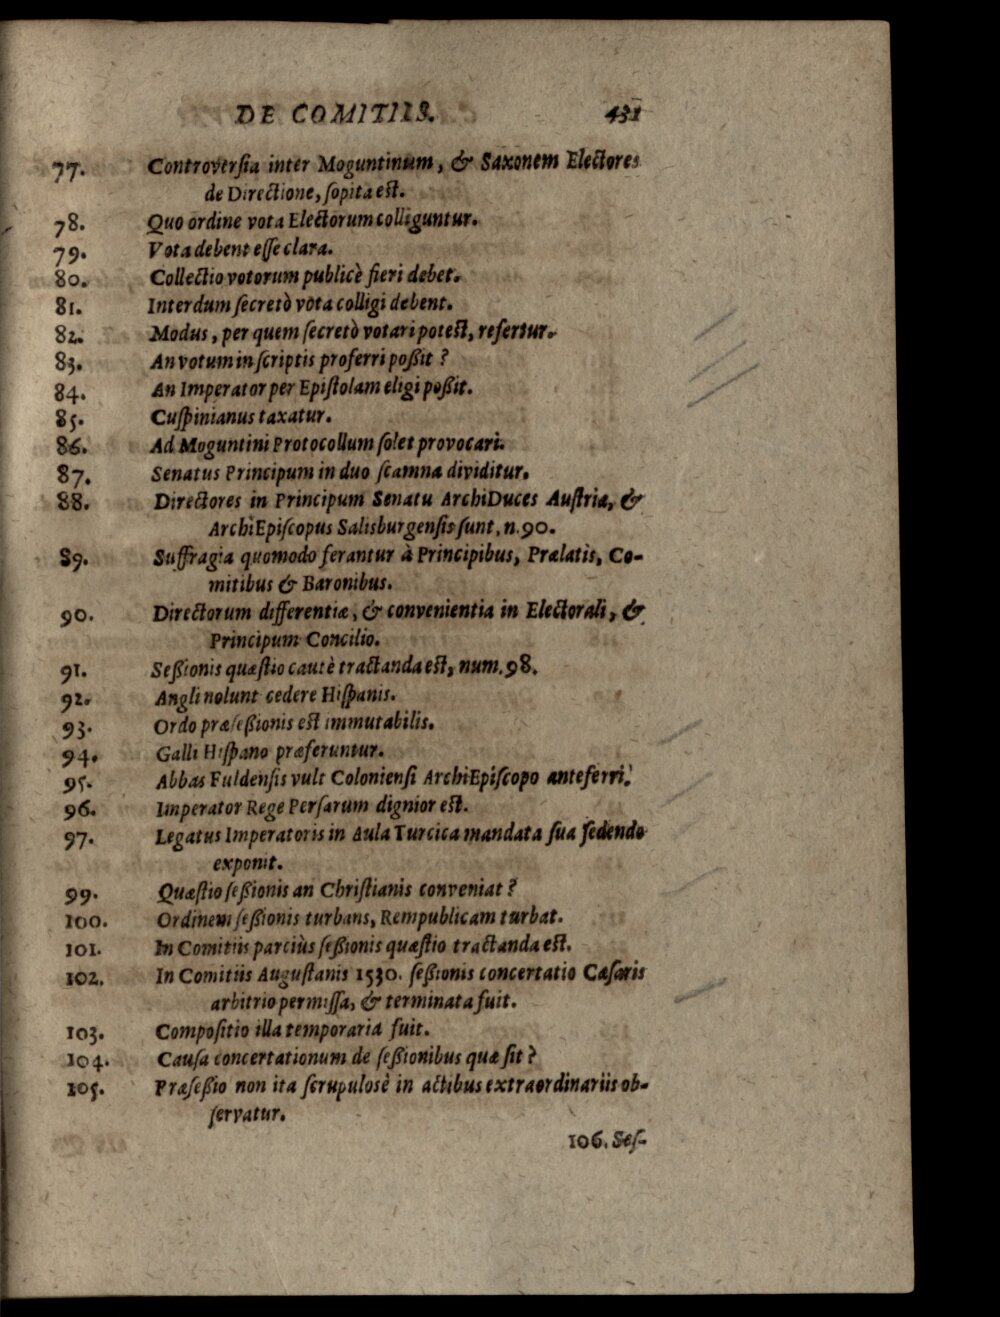 DE COMITIIS. 431
77. Controverſia inter Moguntinum, & Saxonem Electores
de Directione, ſopita eſt.
78. Quo ordine vota Electorum colliguntur.
79. Vota debent eſſe clara.
80. Collectio votorum publicè fieri debet.
81. Interdum ſecretò vota colligi debent.
82. Modus, per quem ſecretò votari poteſt, refertur.
83. An votum in ſcriptis proferri poßit?
84. An Imperator per Epiſtolam eligi poßit.
85. Cuſpinianus taxatur.
86. Ad Moguntini Protocollum ſolet provocari.
87. Senatus Principum in duo ſcamna dividitur.
88. Directores in Principum Senatu ArchiDuces Auſtriæ, &
ArchiEpiſcopus Salisburgenſis ſunt, n.90.
89. Suffragia quomodo ferantur à Principibus, Prælatis, Co-
mitibus & Baronibus.
90. Directorum differentiæ, & convenientia in Electorali, &
Principum Concilio.
91. Seßionis quæſtio cautè tractanda eſt, num.98.
92. Angli nolunt cedere Hiſpanis.
93. Ordo præſeßionis eſt immutabilis.
94. Galli Hiſpano præferuntur.
95. Abbas Fuldenſis vult Colonienſi ArchiEpiſcopo anteferri.
96. Imperator Rege Perſarum dignior eſt.
97. Legatus Imperatoris in Aula Turcica mandata ſua ſedendo
exponit.
99. Quæſtio ſeßionis an Chriſtianis conveniat?
100. Ordinem ſeßionis turbans, Rempublicam turbat.
101. In Comitiis parciùs ſeßionis quæſtio tractanda eſt.
102. In Comitiis Auguſtanis 1530. ſeßionis concertatio Cæſaris
arbitrio permiſſa, & terminata fuit.
103. Compoſitio illa temporaria fuit.
104. Cauſa concertationum de ſeßionibus quæ ſit?
105. Præſeßio non ita ſcrupulosè in actibus extraordinariis ob-
ſervatur.
106. Seſ-